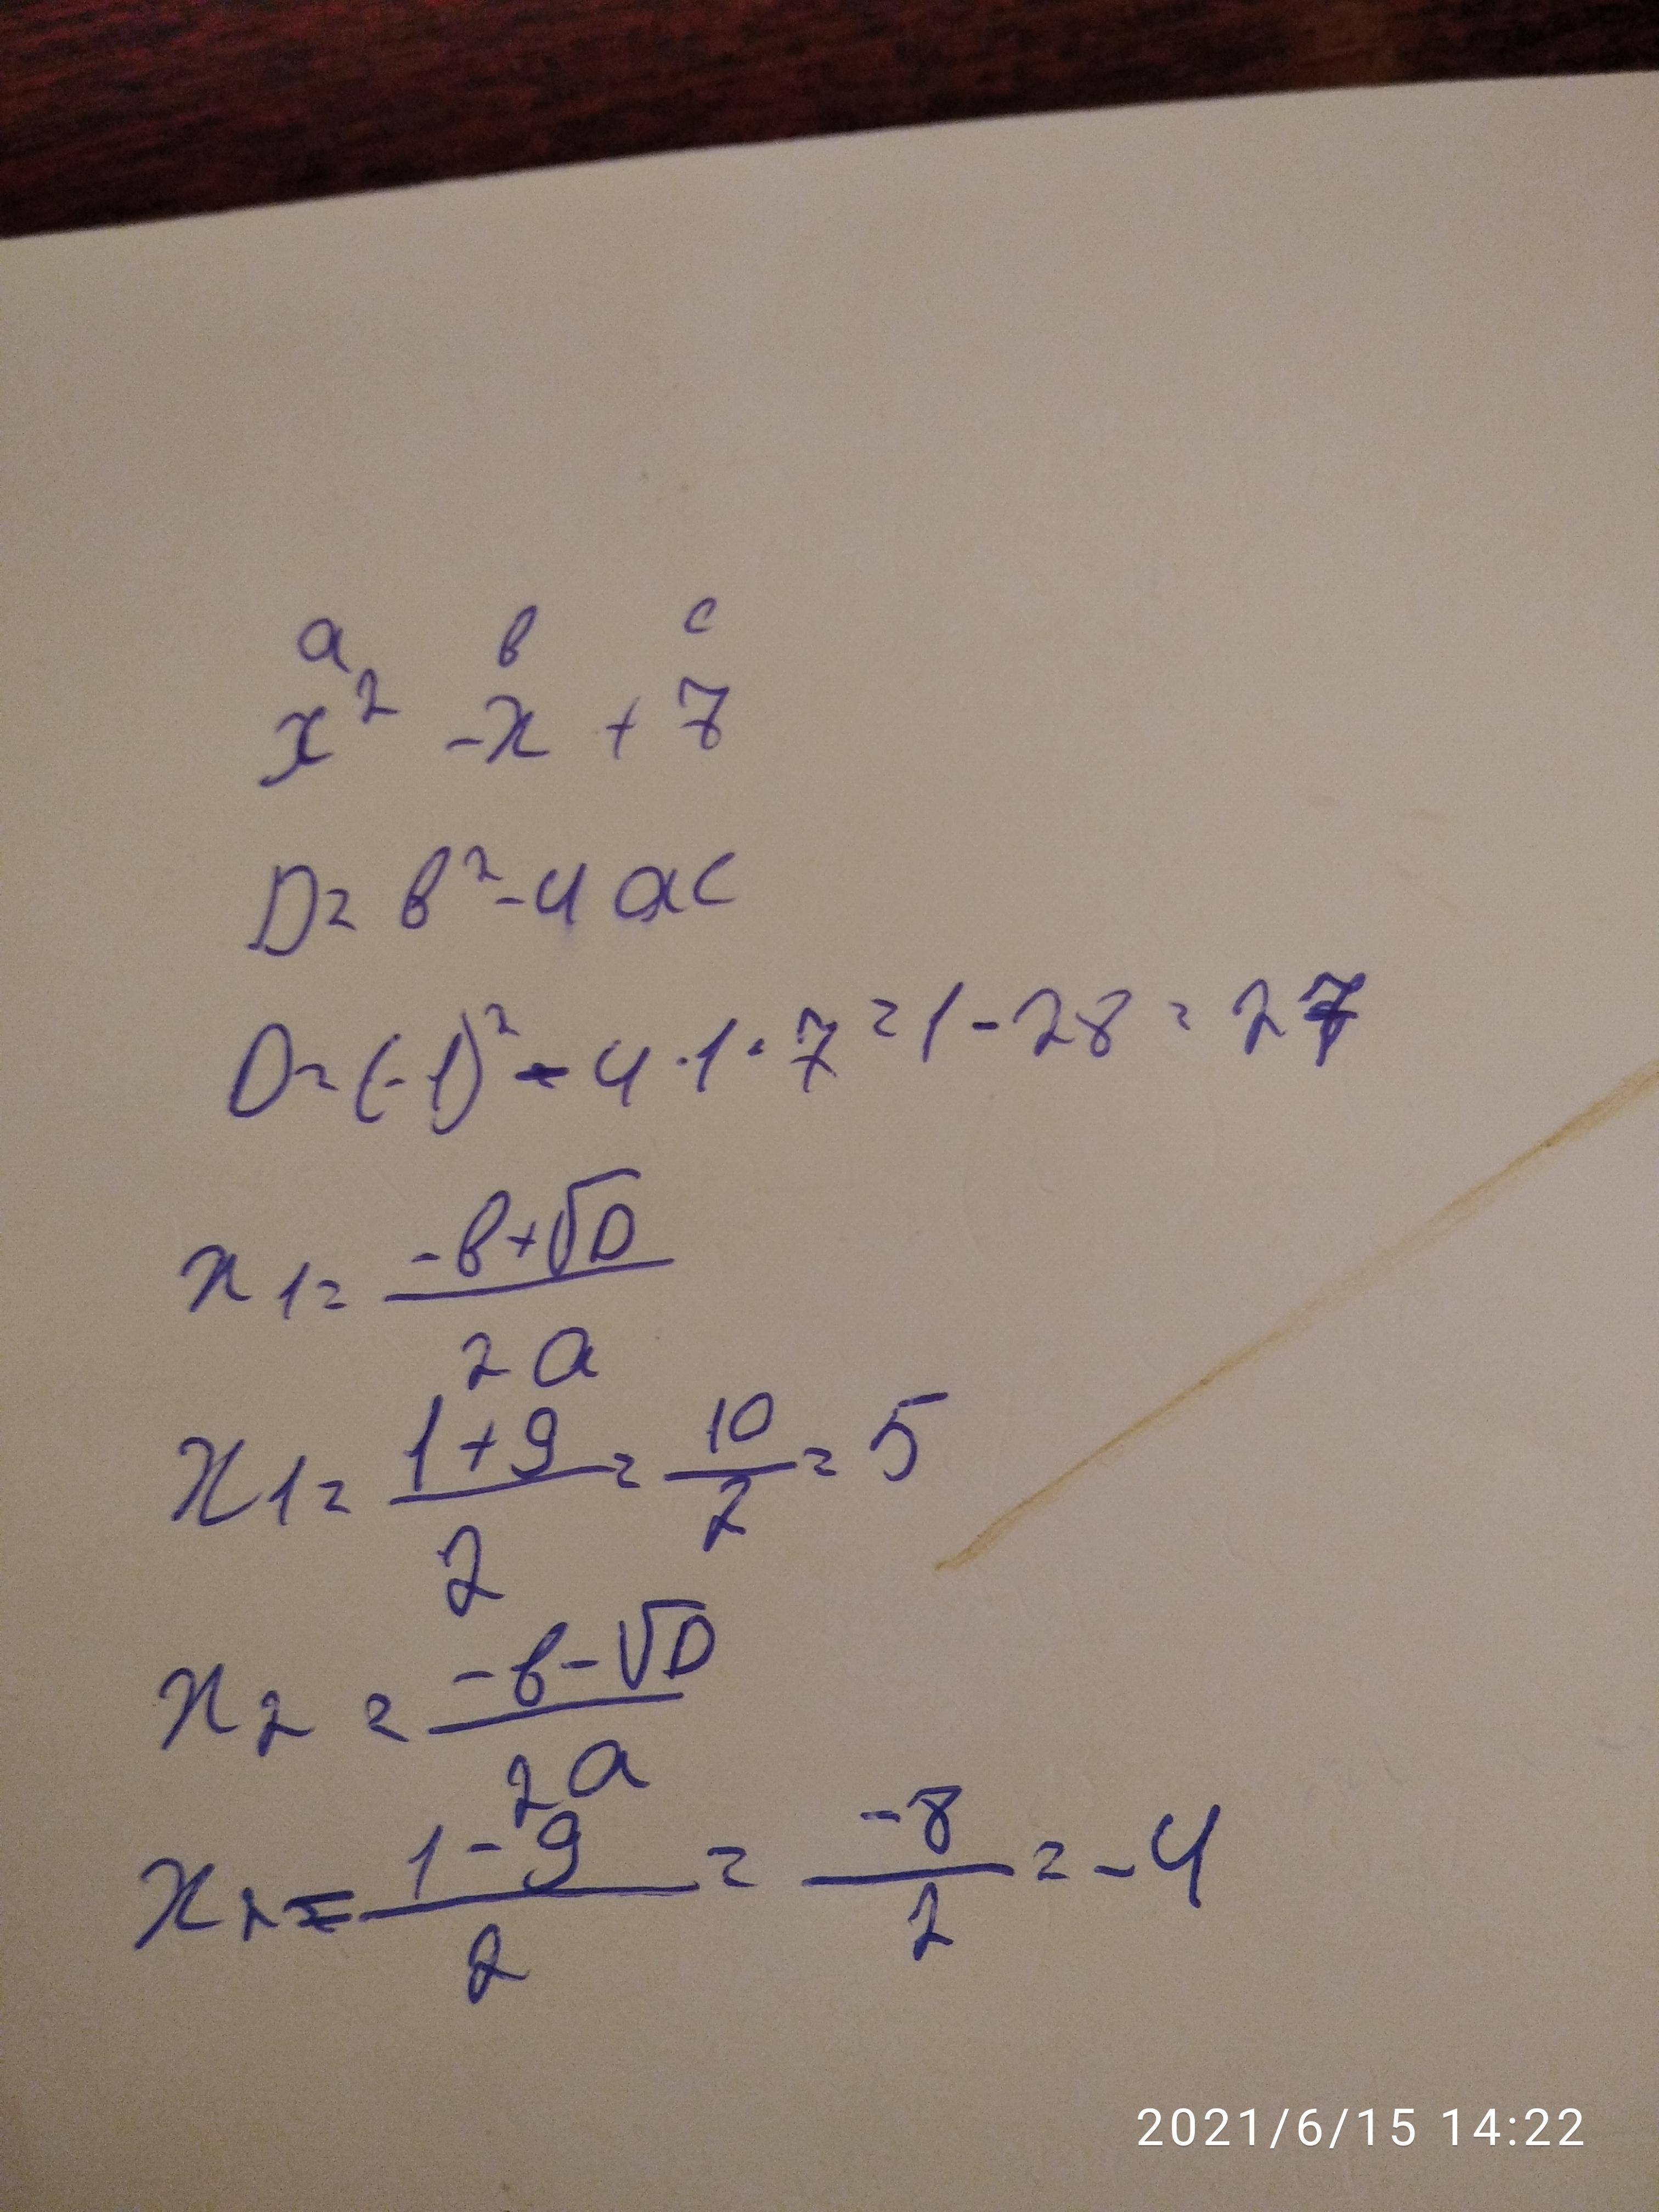 a в c
x² -x + 7
D= в²-4ac
D=(-1)²-4·1·7=1-28=27
x1= -в+√D / 2a
x1= 1+9 / 2 = 10 / 2 = 5
x2 = -в-√D / 2a
x2= 1-9 / 2 = -8 / 2 = -4
2021/6/15 14:22